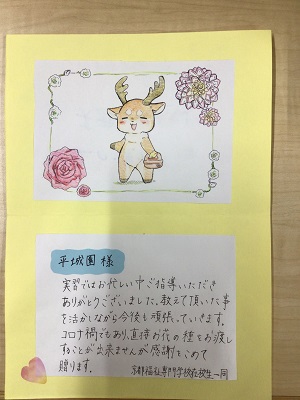 平城園 様
実習ではお忙しい中ご指導いただき
ありがとうございました。教えて頂いた事
を活かしながら今後も頑張っていきます。
コロナ禍でもあり、直接お花の種をお渡し
することが出来ませんが感謝をこめて
贈ります。
福祉専門学校在校生一同